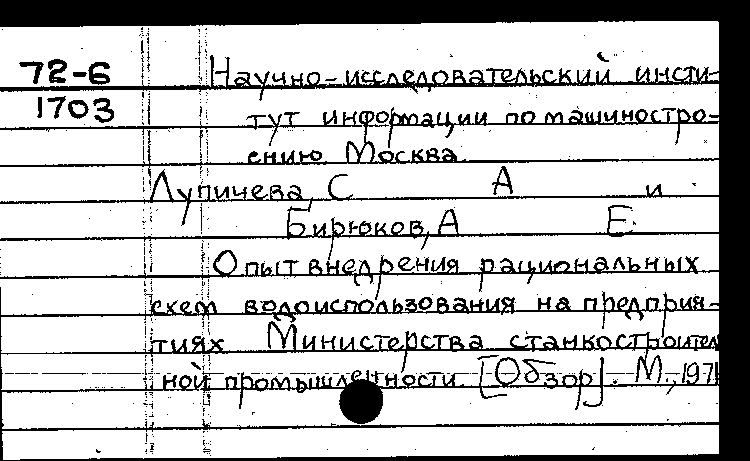 72-6 Научно-исследовательский инсти-
1703 тут информации по машиностро-
ению. Москва.
Лупичева, С А и
Бирюков, А Е.
Опыт внедрения рациональных
схем водоиспользования на предприя-
тиях Министерства станкостроител
ной промышленности. [Обзор]. М., 1971